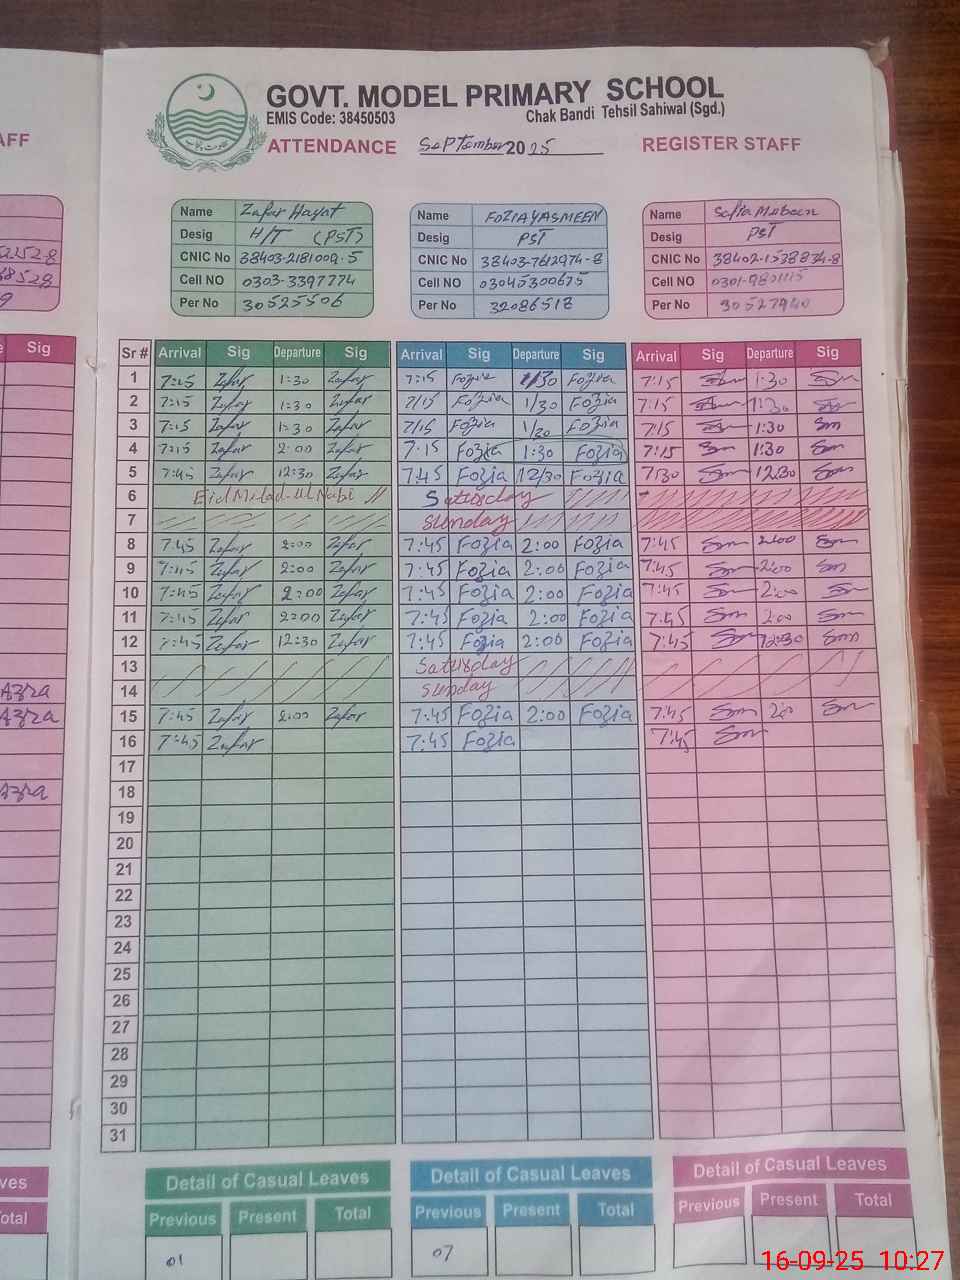 GOVT. MODEL PRIMARY SCHOOL
EMIS Code: 38450503 Chak Bandi Tehsil Sahiwal (Sgd.)
AFF ATTENDANCE September 2025 REGISTER STAFF
Name Zafar Hayat Name FOZIA YASMEEN Name Safia Mobeen
Desig H/T (PST) Desig PST Desig PST
CNIC No 38403-2181009-5 CNIC No 38403-7612974-8 CNIC No 38402-1538834-8
Cell NO 0303-3397774 Cell NO 03045300675 Cell NO 0301-9801115
Per No 30525506 Per No 32086518 Per No 30527940
Sig Sr # Arrival Sig Departure Sig Arrival Sig Departure Sig Arrival Sig Departure Sig
1 7:15 Zafar 1:30 Zafar 7:15 Fozia 1/30 Fozia 7:15 1:30
2 7:15 Zafar 1:30 Zafar 7/15 Fozia 1/30 Fozia 7:15 1:30
3 7:15 Zafar 1:30 Zafar 7/15 Fozia 1/30 Fozia 7:15 1:30 Sm
4 7:15 Zafar 2:00 Zafar 7:15 Fozia 1:30 Fozia 7:15 Sm 1:30 Sm
5 7:45 Zafar 12:30 Zafar 7:45 Fozia 12/30 Fozia 7:30 Sm 12:30 Sm
6 Eid Milad-ul Nabi Saturday
7 Sunday
8 7:45 Zafar 2:00 Zafar 7:45 Fozia 2:00 Fozia 7:45 Sm 2:00 Sm
9 7:45 Zafar 2:00 Zafar 7:45 Fozia 2:00 Fozia 7:45 Sm 2:00 Sm
10 7:45 Zafar 2:00 Zafar 7:45 Fozia 2:00 Fozia 7:45 Sm 2:00 Sm
11 7:45 Zafar 2:00 Zafar 7:45 Fozia 2:00 Fozia 7:45 Sm 2:00 Sm
12 7:45 Zafar 12:30 Zafar 7:45 Fozia 2:00 Fozia 7:45 Sm 12:30 Sm
13 Saturday
14 Sunday
Azra
15 7:45 Zafar 2:00 Zafar 7:45 Fozia 2:00 Fozia 7:45 Sm Sm
Azra
16 7:45 Zafar 7:45 Fozia 7:45 Sm
17
18
Azra
19
20
21
22
23
24
25
26
27
28
29
30
31
Detail of Casual Leaves Detail of Casual Leaves Detail of Casual Leaves
Previous Present Total Previous Present Total Previous Present Total
01 07
16-09-25 10:27